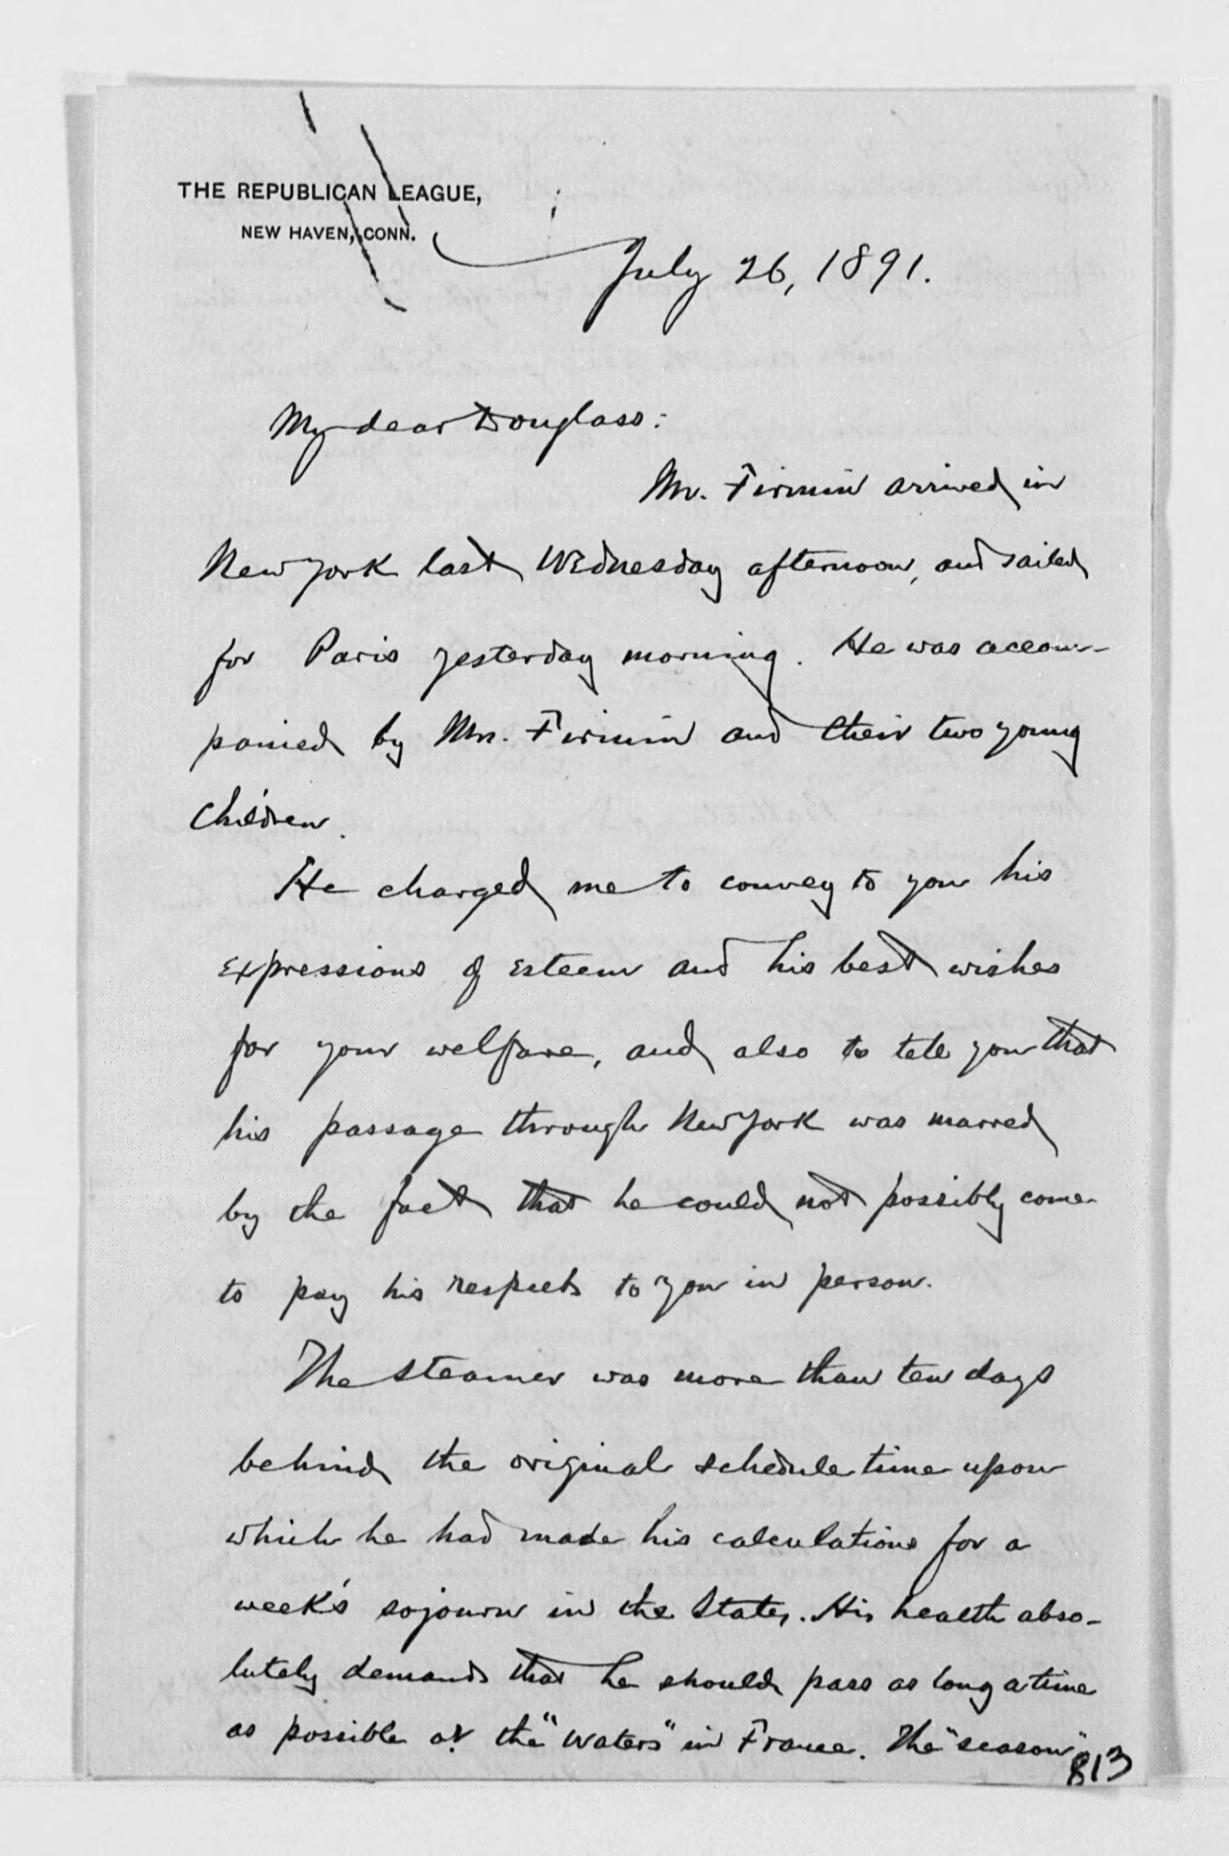 THE REPUBLICAN LEAGUE,
NEW HAVEN, CONN.
July 26, 1891.
My dear Douglass:
Mr. Firmin arrived in
New York last Wednesday afternoon, and sailed
for Paris yesterday morning. He was accom-
panied by Mrs. Firmin and their two young
children.
He charged me to convey to you his
expressions of esteem and his best wishes
for your welfare, and also to tell you that
his passage through New York was marred
by the fact that he could not possibly come
to pay his respects to you in person.
The steamer was more than ten days
behind the original schedule time upon
which he had made his calculations for a
week's sojourn in the States. His health abso-
lutely demands that he should pass as long a time
as possible at the "waters" in France. The "season"
813